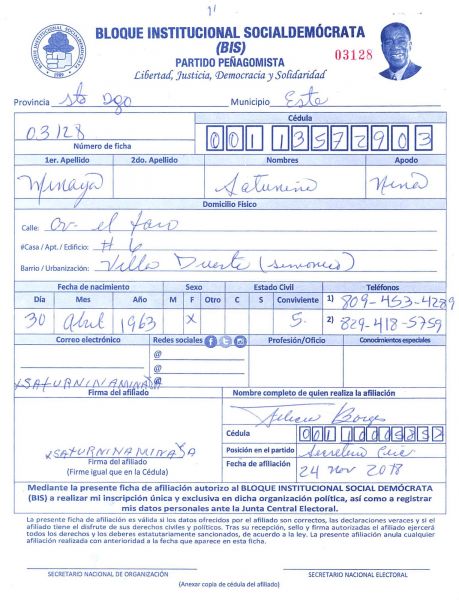 BLOQUE INSTITUCIONAL SOCIALDEMÓCRATA
(BIS)
PARTIDO PEÑAGOMISTA
Libertad, Justicia, Democracia y Solidaridad
03128
Provincia Sto Dgo Municipio Este
03128
Número de ficha
Cédula
00113572903
1er. Apellido 2do. Apellido Nombres Apodo
Minaya Saturnina Nina
Domicilio Físico
Calle: Av. el faro
#Casa / Apt. / Edificio: # 6
Barrio / Urbanización: Villa Duarte (simonico)
Fecha de nacimiento Sexo Estado Civil Teléfonos
Día Mes Año M F Otro C S Conviviente 1) 809-453-4289
30 Abril 1963 X S. 2) 829-418-5759
Correo electrónico Redes sociales Profesión/Oficio Conocimientos especiales
@
@
@
XSATURNINAMINAYA
Firma del afiliado Nombre completo de quien realiza la afiliación
Borges
Cédula
XSATURNINAMINAYA
Firma del afiliado
(Firme igual que en la Cédula)
Posición en el partido Secretario
Fecha de afiliación 24 nov 2018
Mediante la presente ficha de afiliación autorizo al BLOQUE INSTITUCIONAL SOCIAL DEMÓCRATA
(BIS) a realizar mi inscripción única y exclusiva en dicha organización política, así como a registrar
mis datos personales ante la Junta Central Electoral.
La presente ficha de afiliación es válida si los datos ofrecidos por el afiliado son correctos, las declaraciones veraces y si el
afiliado tiene el disfrute de sus derechos civiles y políticos. Tras su recepción, sello y firma autorizadas el afiliado ejercerá
todos los derechos y los deberes estatutariamente sancionados, de acuerdo a la ley. La presente afiliación anula cualquier
afiliación realizada con anterioridad a la fecha que aparece en esta ficha.
SECRETARIO NACIONAL DE ORGANIZACIÓN SECRETARIO NACIONAL ELECTORAL
(Anexar copia de cédula del afiliado)